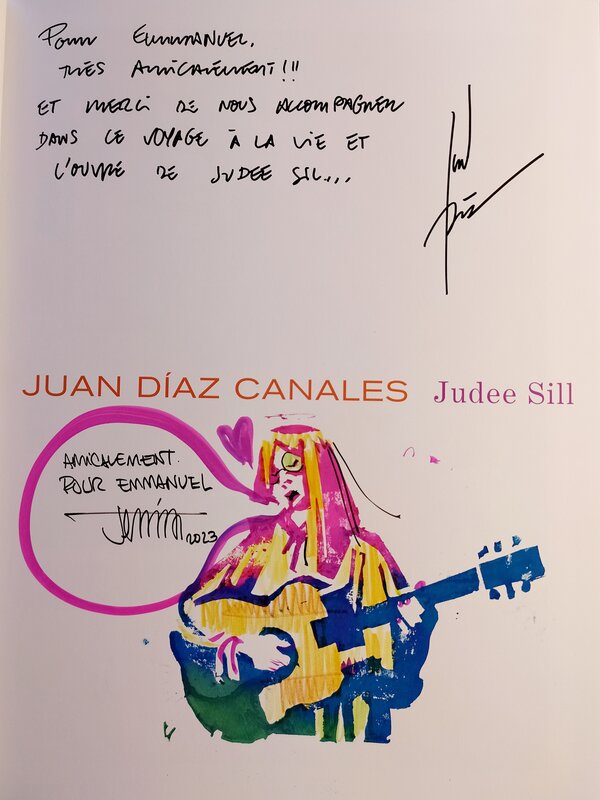 Pour EMMANUEL,
TRÈS AMICALEMENT!!!
ET MERCI DE NOUS ACCOMPAGNER
DANS CE VOYAGE À LA VIE ET
L'OUVRE DE JUDEE SIL...
JUAN DÍAZ CANALES Judee Sill
AMICALEMENT.
POUR EMMANUEL
2023